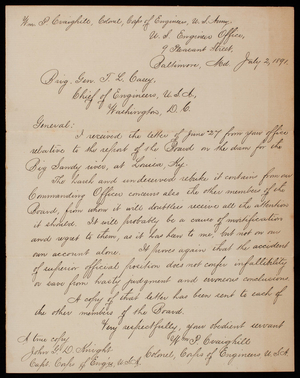 Wm P. Craighill, Colonel, Corps of Engineers, U.S. Army.
U.S. Engineer Office,
9 Pleasant Street,
Baltimore, Md. July 2, 1891.
Brig. Gen. T. L. Casey,
Chief of Engineers, U.S.A,
Washington, D.C.
General:
I received the letter of June 27 from your office
relative to the report of the Board on the dam for the
Big Sandy river, at Louisa, Ky.
The harsh and undeserved rebuke it contains from our
Commanding Officer concerns also the other members of the
Board, from whom it will doubtless receive all the attention
it should. It will probably be a cause of mortification
and regret to them, as it has been to me, but not on our
own account alone. It proves again that the accident
of superior official position does not confer infallibility
or save from hasty judgment and erroneous conclusions.
A copy of that letter has been sent to each of
the other members of the Board.
Very respectfully, your obedient servant
Wm P. Craighill
Colonel, Corps of Engineers U.S.A
A true copy
John G. D. Knight
Capt. Corps of Eng'rs, U.S.A.